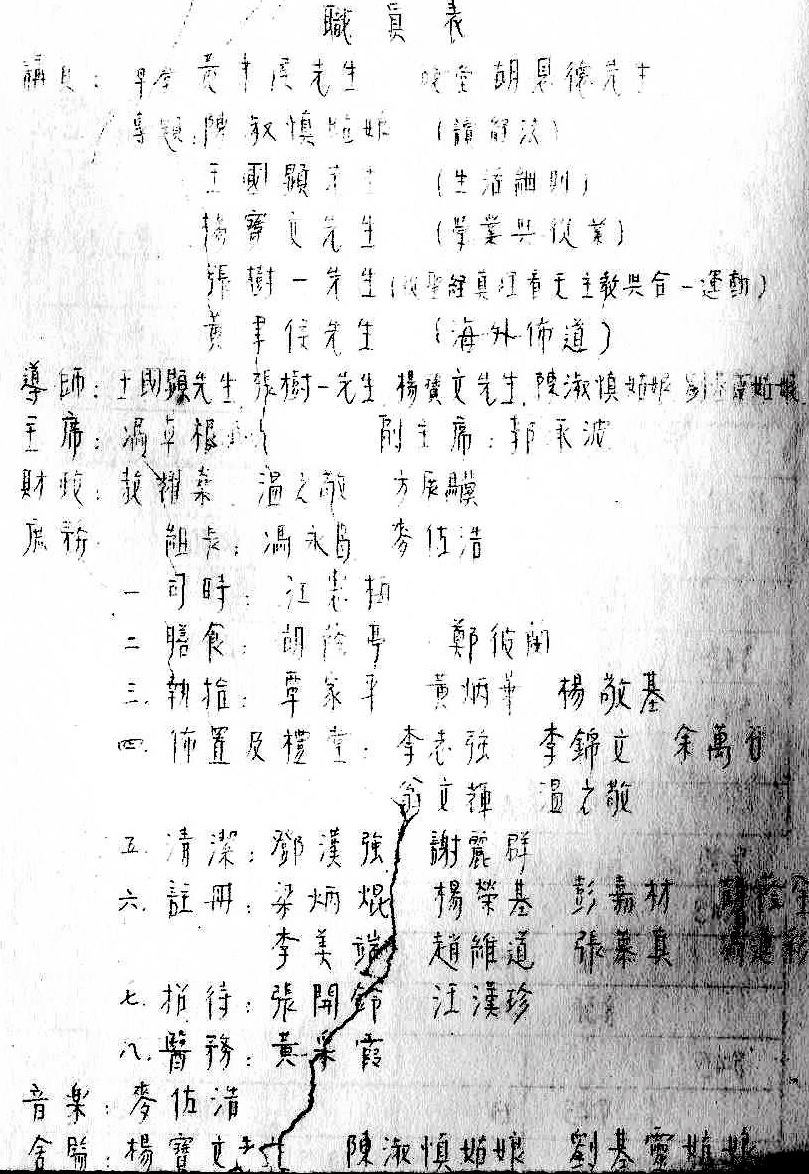 職員表
講員：早堂 黃聿 先生 晚堂 胡恩德先生
專題：陳淑慎姑娘 (讀經法)
王國顯先生 (生活細則)
楊寶文先生 (學業與從業)
張樹一先生 (從聖經真理看天主教與合一運動)
黃聿 先生 (海外佈道)
導師：王國顯先生 張樹一先生 楊寶文先生 陳淑慎姑娘 劉基靈姑娘
主席：馮卓根 副主席：郭永波
財政： 耀燊 溫之敬 方展驥
庶務 組長：馮永昌 麥佐浩
一 司時：江 栢
二 膳食：胡 亭 鄭彼蘭
三 執拾：覃家平 黃炳華 楊敬基
四. 佈置及禮堂：李志強 李錦文 余萬
翁文輝 溫之敬
五. 清潔：鄧漢強 謝麗群
六. 註冊：梁炳焜 楊榮基 彭嘉材
李美端 趙維道 張慕真
七. 招待：張開鈴 汪漢珍
八. 醫務：黃采霞
音樂：麥佐浩
舍監：楊寶文先生 陳淑慎姑娘 劉基靈姑娘